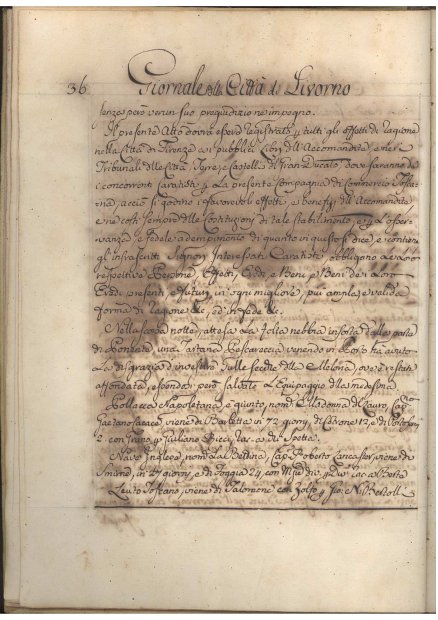 36 Giornale della Città di Livorno
senza però verun suo pregiudizio ne impegno.
Il presente Atto dovrà essere registrato p tutti gli effetti di ragione
nella Città di Firenze ai pubblici libri dell'Accomandita, e nei
Tribunali delle Città, Terre, e Castelli del Gran Ducato, dove saranno de
concorrenti Caratisti p la presente Compagnia di Commercio Tosca-
na, acciò si godino i favorevoli effetti, e benefizj dell'Accomandite
e ne costi sempre delle Costituzioni di tale stabilimento, e p l'osser-
vanza, e fedele adempimento di quanto in questo si dice, e contiene
gl'infrascritti Signori Interessati Caratisti, obbligano le loro
respettive Persone, Effetti, Eredi, e Beni, e Beni de loro
Eredi presenti, e futuri in ogni miglior, più ampla, e valida
forma di ragione &c. ed in fede &c.
Nella scorsa notte, attesa la folta nebbia insorta dalla parte
di Ponente, una Tartana Pescareccia venendo in Porto ha avuto
la disgrazia d'investire sulle secche della Meloria, ove è restata
affondata, essendosi però salvato l'Equipaggio della medesima
Pollacca Napoletana, e quinto, nom. Madonna di Lauro, Cap.
Gaetano viene di Barletta in 72 giorni, di Cotrone 12, e di
2 con Grano, p Giuliano Ricci,
Nave Inglese, nom. La Bettina, Cap. Roberto Lancaster, viene di
Smirne, in 27 giorni, e di Foggia 24, con
Leuto Toscano, viene di Talamone con Zolfo p